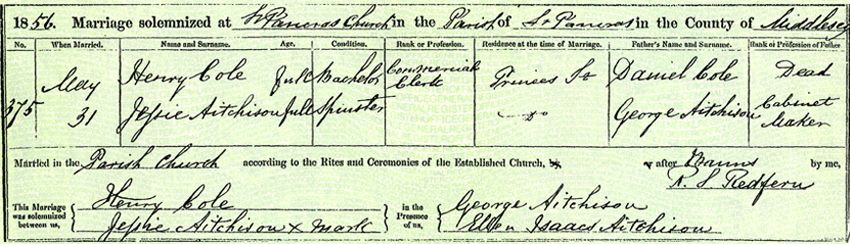 1856. Marriage solemnized at St Pancras Church in the Parish of St Pancras in the County of Middlesex
No. When Married. Name and Surname. Age. Condition. Rank or Profession. Residence at the time of Marriage. Father's Name and Surname. Rank or Profession of Father.
375 May 31
Henry Cole full Bachelor Commercial Clerk Princes St Daniel Cole Dead
Jessie Aitchison full Spinster —do— George Aitchison Cabinet Maker
Married in the Parish Church according to the Rites and Ceremonies of the Established Church, by, or after Banns by me,
R. S. Redfern
This Marriage was solemnized between us, Henry Cole in the Presence of us, George Aitchison
Jessie Aitchison x Mark Ellen Isaacs Aitchison